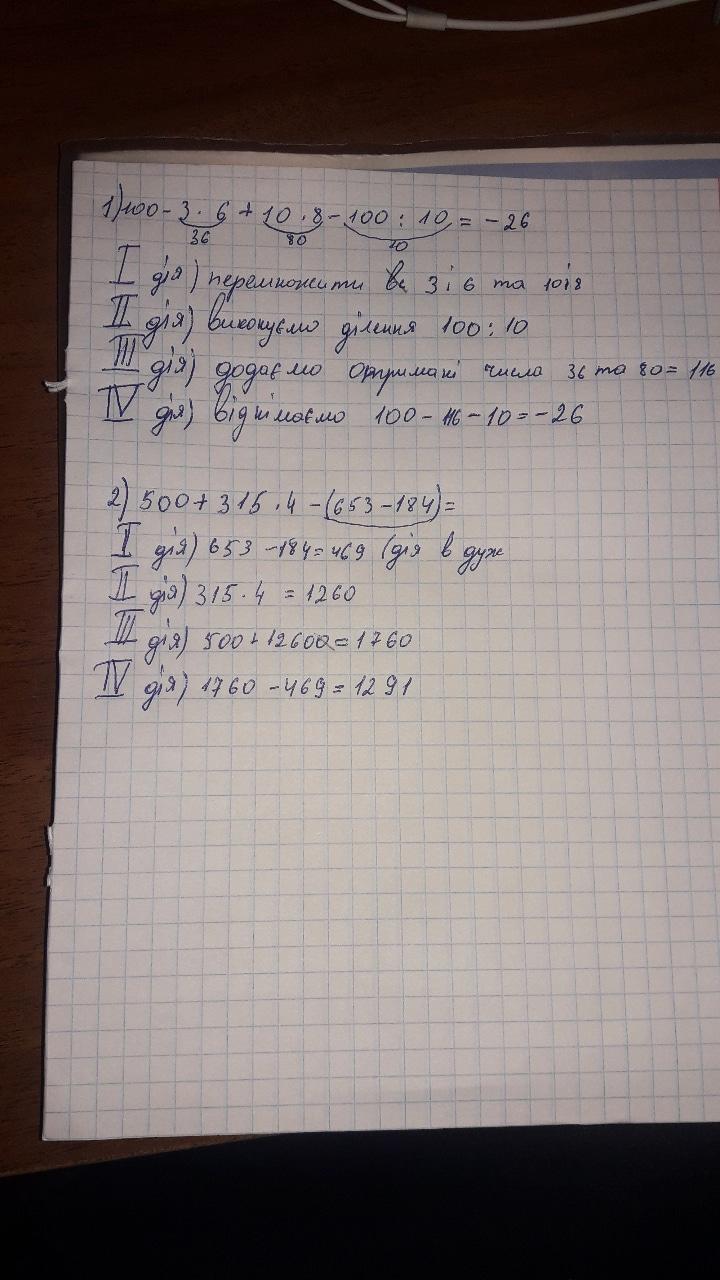 1) 100 - 3 · 6 + 10 · 8 - 100 : 10 = - 26
36 80 10
I дія) перемножити 3 і 6 та 10 і 8
II дія) виконуємо ділення 100 : 10
III дія) додаємо отримані числа 36 та 80 = 116
IV дія) віднімаємо 100 - 116 - 10 = - 26
2) 500 + 315 · 4 - (653 - 184) =
I дія) 653 - 184 = 469 (дія в дуж
II дія) 315 · 4 = 1260
III дія) 500 + 1260 = 1760
IV дія) 1760 - 469 = 1291